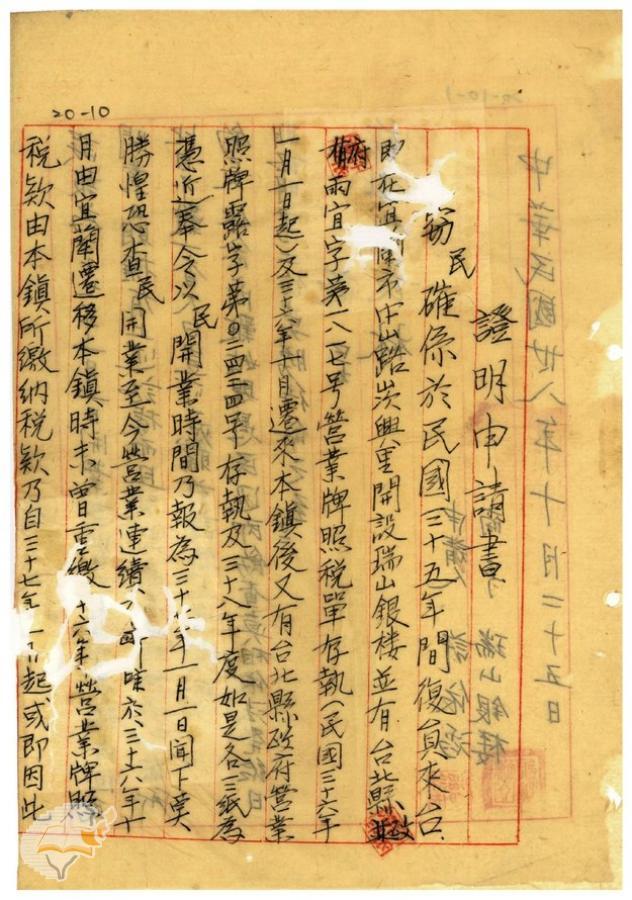 20-10
證明申請書
竊民確係於民國三十五年間復員來台
即在宜蘭市中山路崇興里開設瑞山銀楼並有台北縣政
府雨宜字第一八一七号營業牌照税單存執(民國三十六年
一月一日起)及三十六年十一月遷來本鎮後又有台北縣政府營業
照牌露字第〇三四三四平存執及三十八年度如是各三紙為
憑近奉令以民開業時間乃報為三十七年一月一日聞下莫
勝惶恐查民開業至今營業連續於三十六年十
月由宜蘭遷移本鎮時未曾重繳十六年營業牌照
税欵由本鎮所繳納税欵乃自三十七年一月起或即因此
中華民國廿八年十月二十五日
瑞山銀楼
申請人